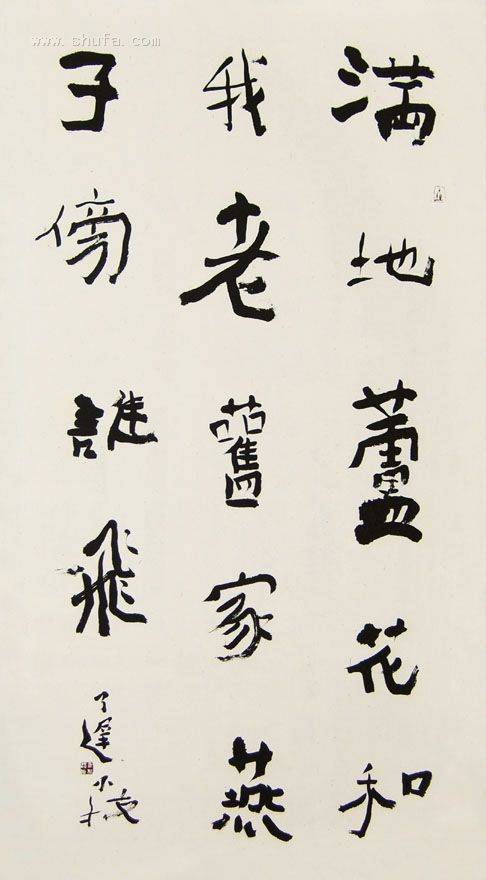 满地蘆花和
我老舊家燕
子傍誰飛
www.shufa.com